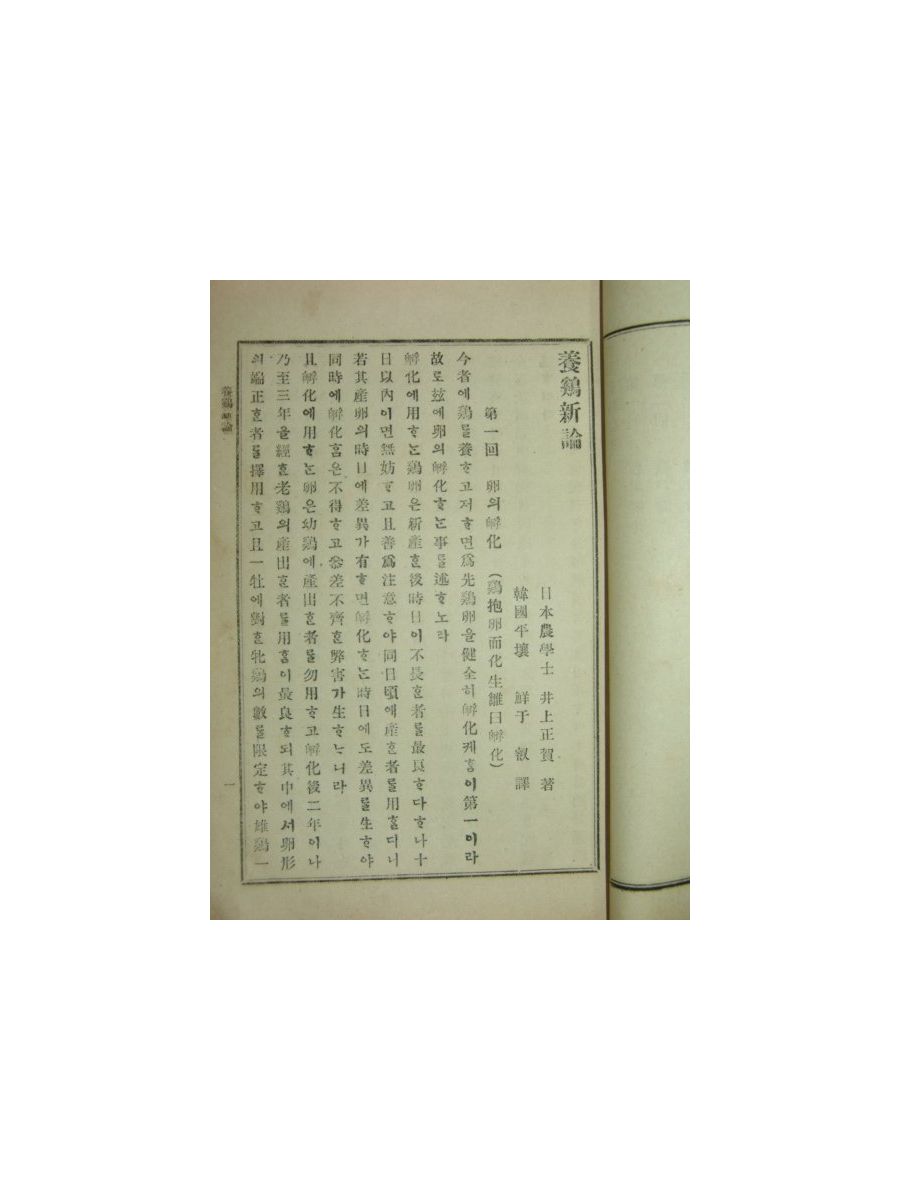 養鷄新論
日本農學士 井上正賀 著
韓國平壤 鮮于 叡 譯
第一回 卵의孵化 (鷄抱卵而化生雛曰孵化)
今者에鷄를養ᄒᆞ고저ᄒᆞ면爲先鷄卵을健全히孵化케홈이第一이라
故로玆에卵의孵化ᄒᆞᄂᆞᆫ事를述ᄒᆞ노라
孵化에用ᄒᆞᄂᆞᆫ鷄卵은新產ᄒᆞᆫ後時日이不長ᄒᆞᆫ者를最良ᄒᆞ다ᄒᆞ나十
日以內이면無妨ᄒᆞ고且善爲注意ᄒᆞ야同日頃에產ᄒᆞᆫ者를用ᄒᆞᆯ디니
若其產卵의時日에差異가有ᄒᆞ면孵化ᄒᆞᄂᆞᆫ時日에도差異를生ᄒᆞ야
同時에孵化홈은不得ᄒᆞ고參差不齊ᄒᆞᆫ弊害가生ᄒᆞᄂᆞ니라
且孵化에用ᄒᆞᄂᆞᆫ卵은幼鷄에產出ᄒᆞᆫ者를勿用ᄒᆞ고孵化後二年이나
乃至三年을經ᄒᆞᆫ老鷄의產出ᄒᆞᆫ者를用홈이最良ᄒᆞ되其中에셔卵形
의端正ᄒᆞᆫ者를擇用ᄒᆞ고且一牡에對ᄒᆞᆫ牝鷄의數를限定ᄒᆞ야雄鷄一
養鷄新論
一